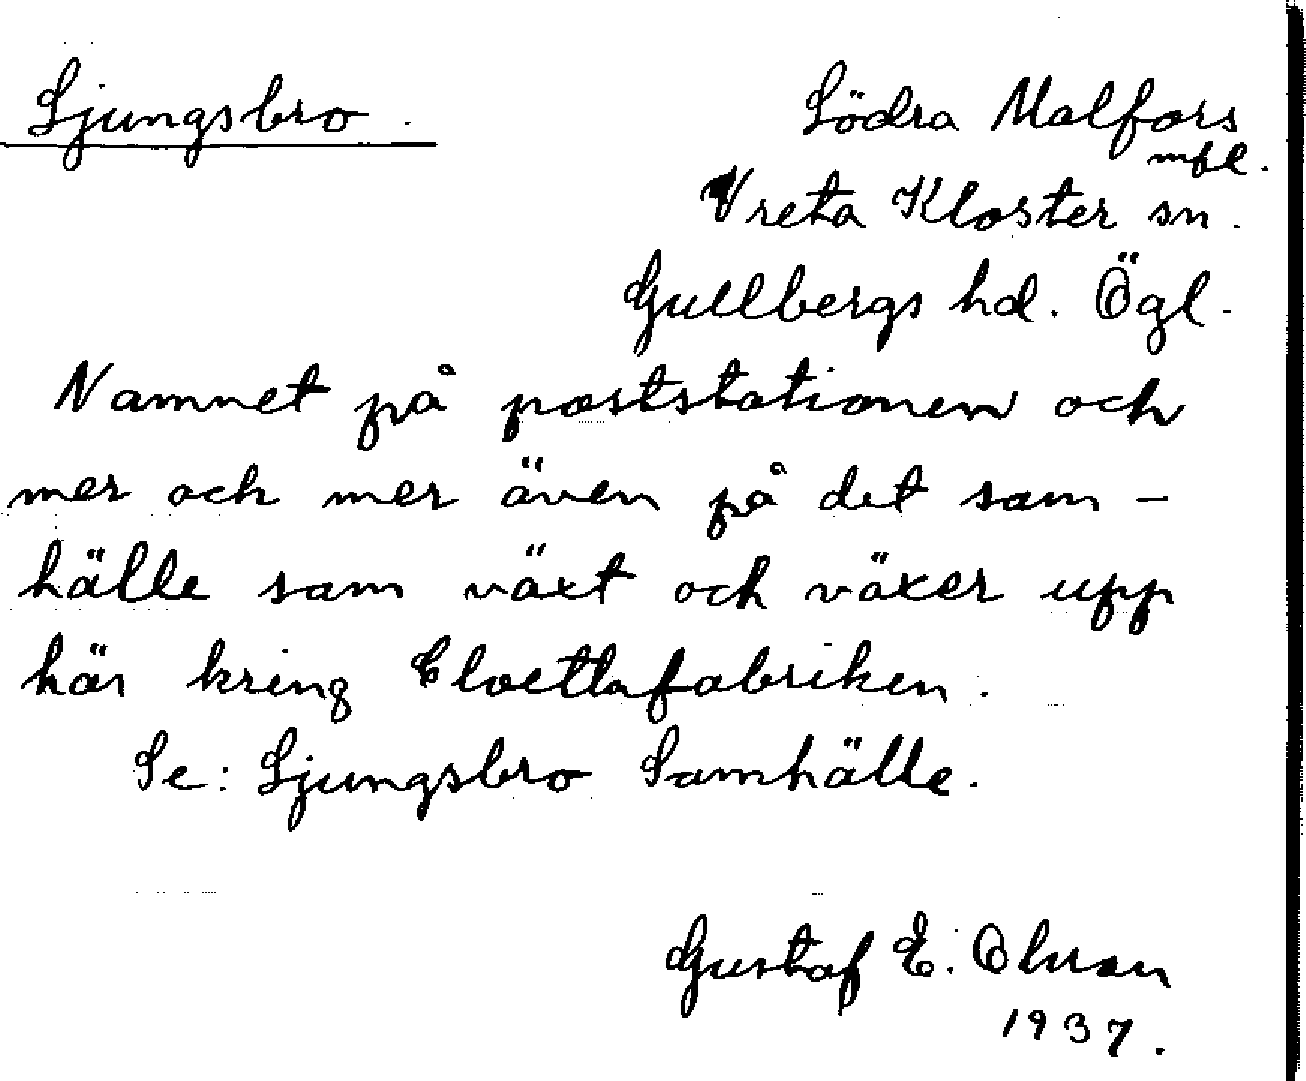 Ljungsbro.
Södra Malfors
mfl.
Vreta Kloster sn.
Gullbergs hd. Ögl.
Namnet på poststationen och
mer och mer även på det sam-
hälle som växt och växer upp
här kring Cloettafabriken.
Se: Ljungsbro Samhälle.
Gustaf E. Olsson
1937.